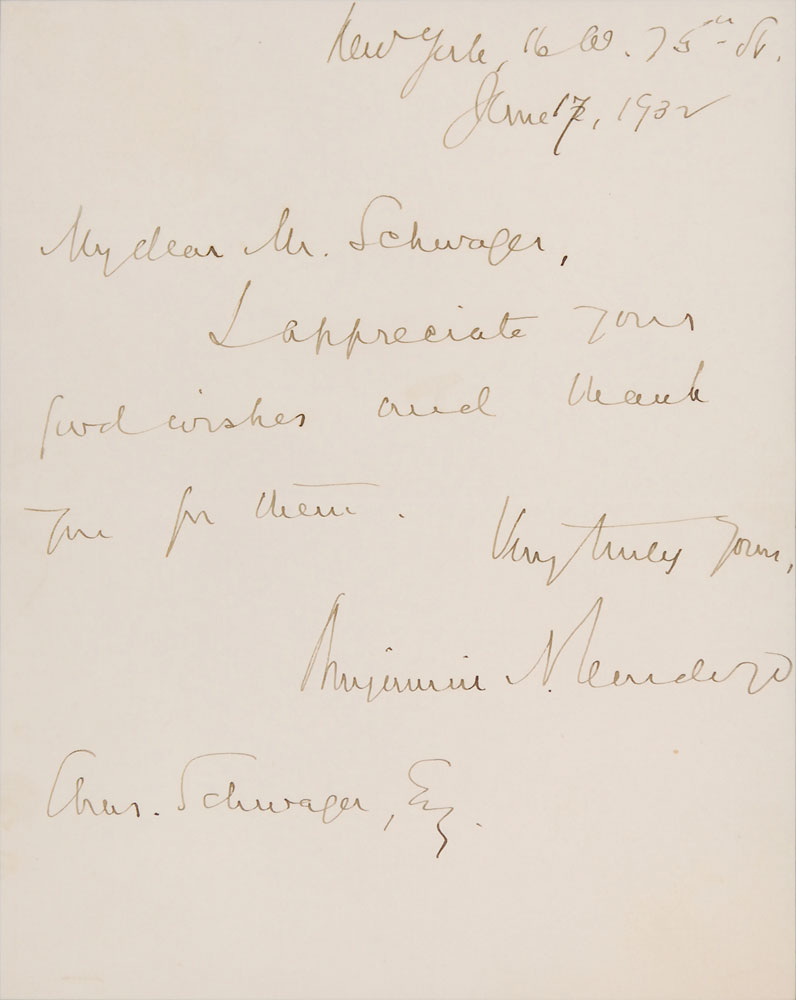 New York, 16 W. 75th St.
June 17, 1932
My dear Mr. Schwager,
I appreciate your
good wishes and thank
you for them.
Very truly yours,
Benjamin N. Cardozo
Chas. Schwager, Esq.